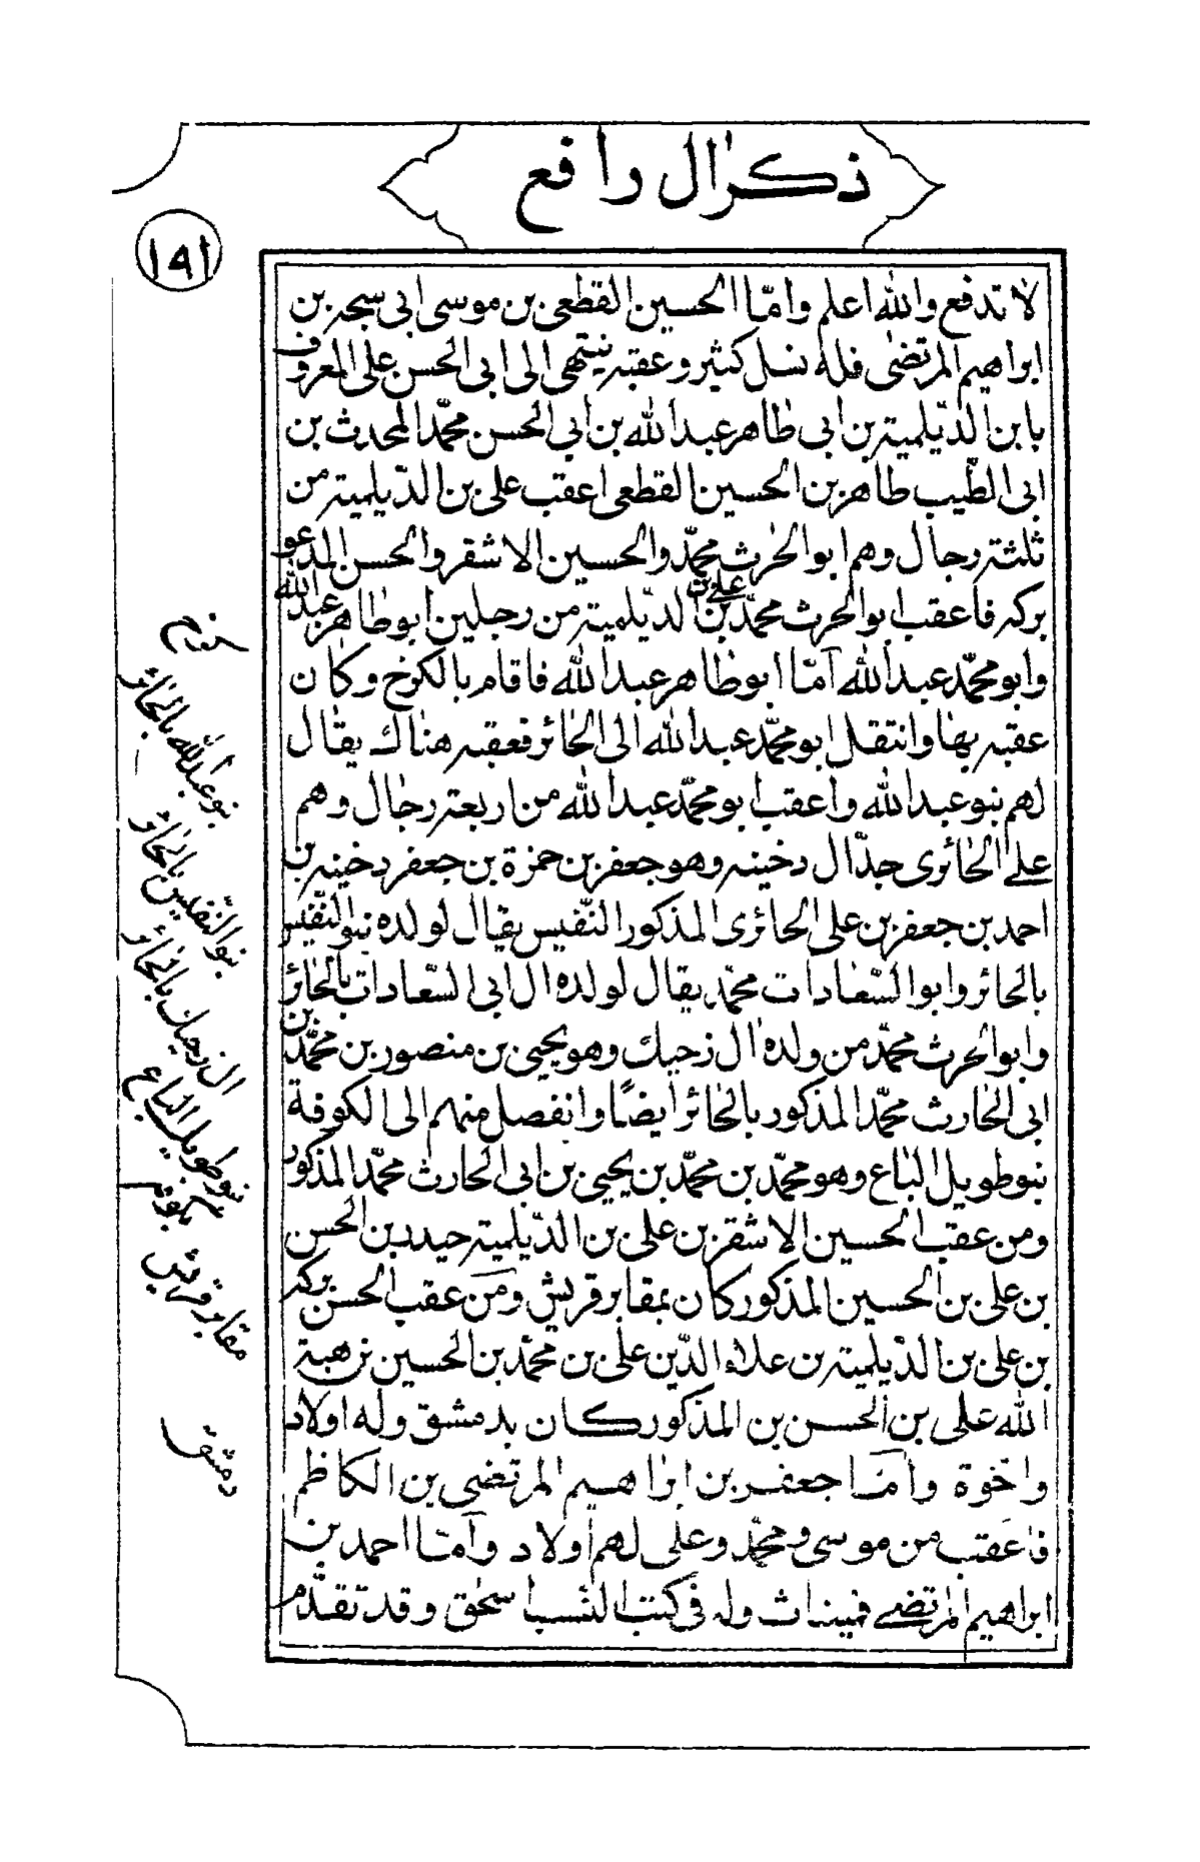 ذكر ال رافع
١٩١
لا تدفع والله اعلم وامّا الحسين القطعى بن موسى ابى سبحه بن
ابراهيم المرتضى فله نسل كثير وعقبه ينتهى الى ابى الحسن على المعروف
بابن الدّيلمية بن ابى طاهر عبد الله بن ابى الحسن محمّد المحدث بن
ابى الطيّب طاهر بن الحسين القطعى اعقب على بن الدّيلمية من
ثلثة رجال وهم ابو الحٰرث محمّد والحسين الاشقر والحسن المدعو
بركه فاعقب ابو الحرث محمّد بن على بن الدّيلمية من رجلين ابو طاهر عبد الله
وابو محمّد عبد الله امّا ابو طاهر عبد الله فاقام بالكرخ وكان
عقبه بها وانتقل ابو محمّد عبد الله الى الحائر فعقبه هناك يقال
لهم بنو عبد الله واعقب ابو محمّد عبد الله من اربعة رجال وهم
على الحائرى جدّ ال دخينه وهو جعفر بن حمزة بن جعفر دخينه بن
احمد بن جعفر بن على الحائرى المذكور النّفيس يقال لولده بنو النّفيس
بالحائر وابو السّعادات محمّد يقال لولده ال ابى السّعادات بالحائر
وابو الحرث محمّد من ولده ال زحيك وهو يحيى بن منصور بن محمّد بن
ابى الحارث محمّد المذكور بالحائر ايضًا وانفصل منهم الى الكوفة
بنو طويل الباع وهو محمّد بن محمّد بن يحيى بن ابى الحارث محمّد المذكور
ومن عقب الحسين الاشقر بن على بن الدّيلمية حيدر بن الحسن
بن على بن الحسين المذكور كان بمقابر قريش ومن عقب الحسن بركه
بن على بن الدّيلمية بن علاء الدّين على بن محمّد بن الحسين بن هبة
الله على بن الحسن بن المذكور كان بدمشق وله اولاد
واخوة وامّا جعفر بن ابراهيم المرتضى بن الكاظم
فاعقب من موسى ومحمّد وعلى لهم اولاد وامّا احمد بن
ابراهيم المرتضى فميناث وله فى كتب النّسب اسحٰق وقد تقدّم
بنو عبد الله بالحائر
بنو النّفيس بالحائر
ال زحيك بالحائر
بنو طويل الباع
بكوفه
مقابر قريش
دمشق